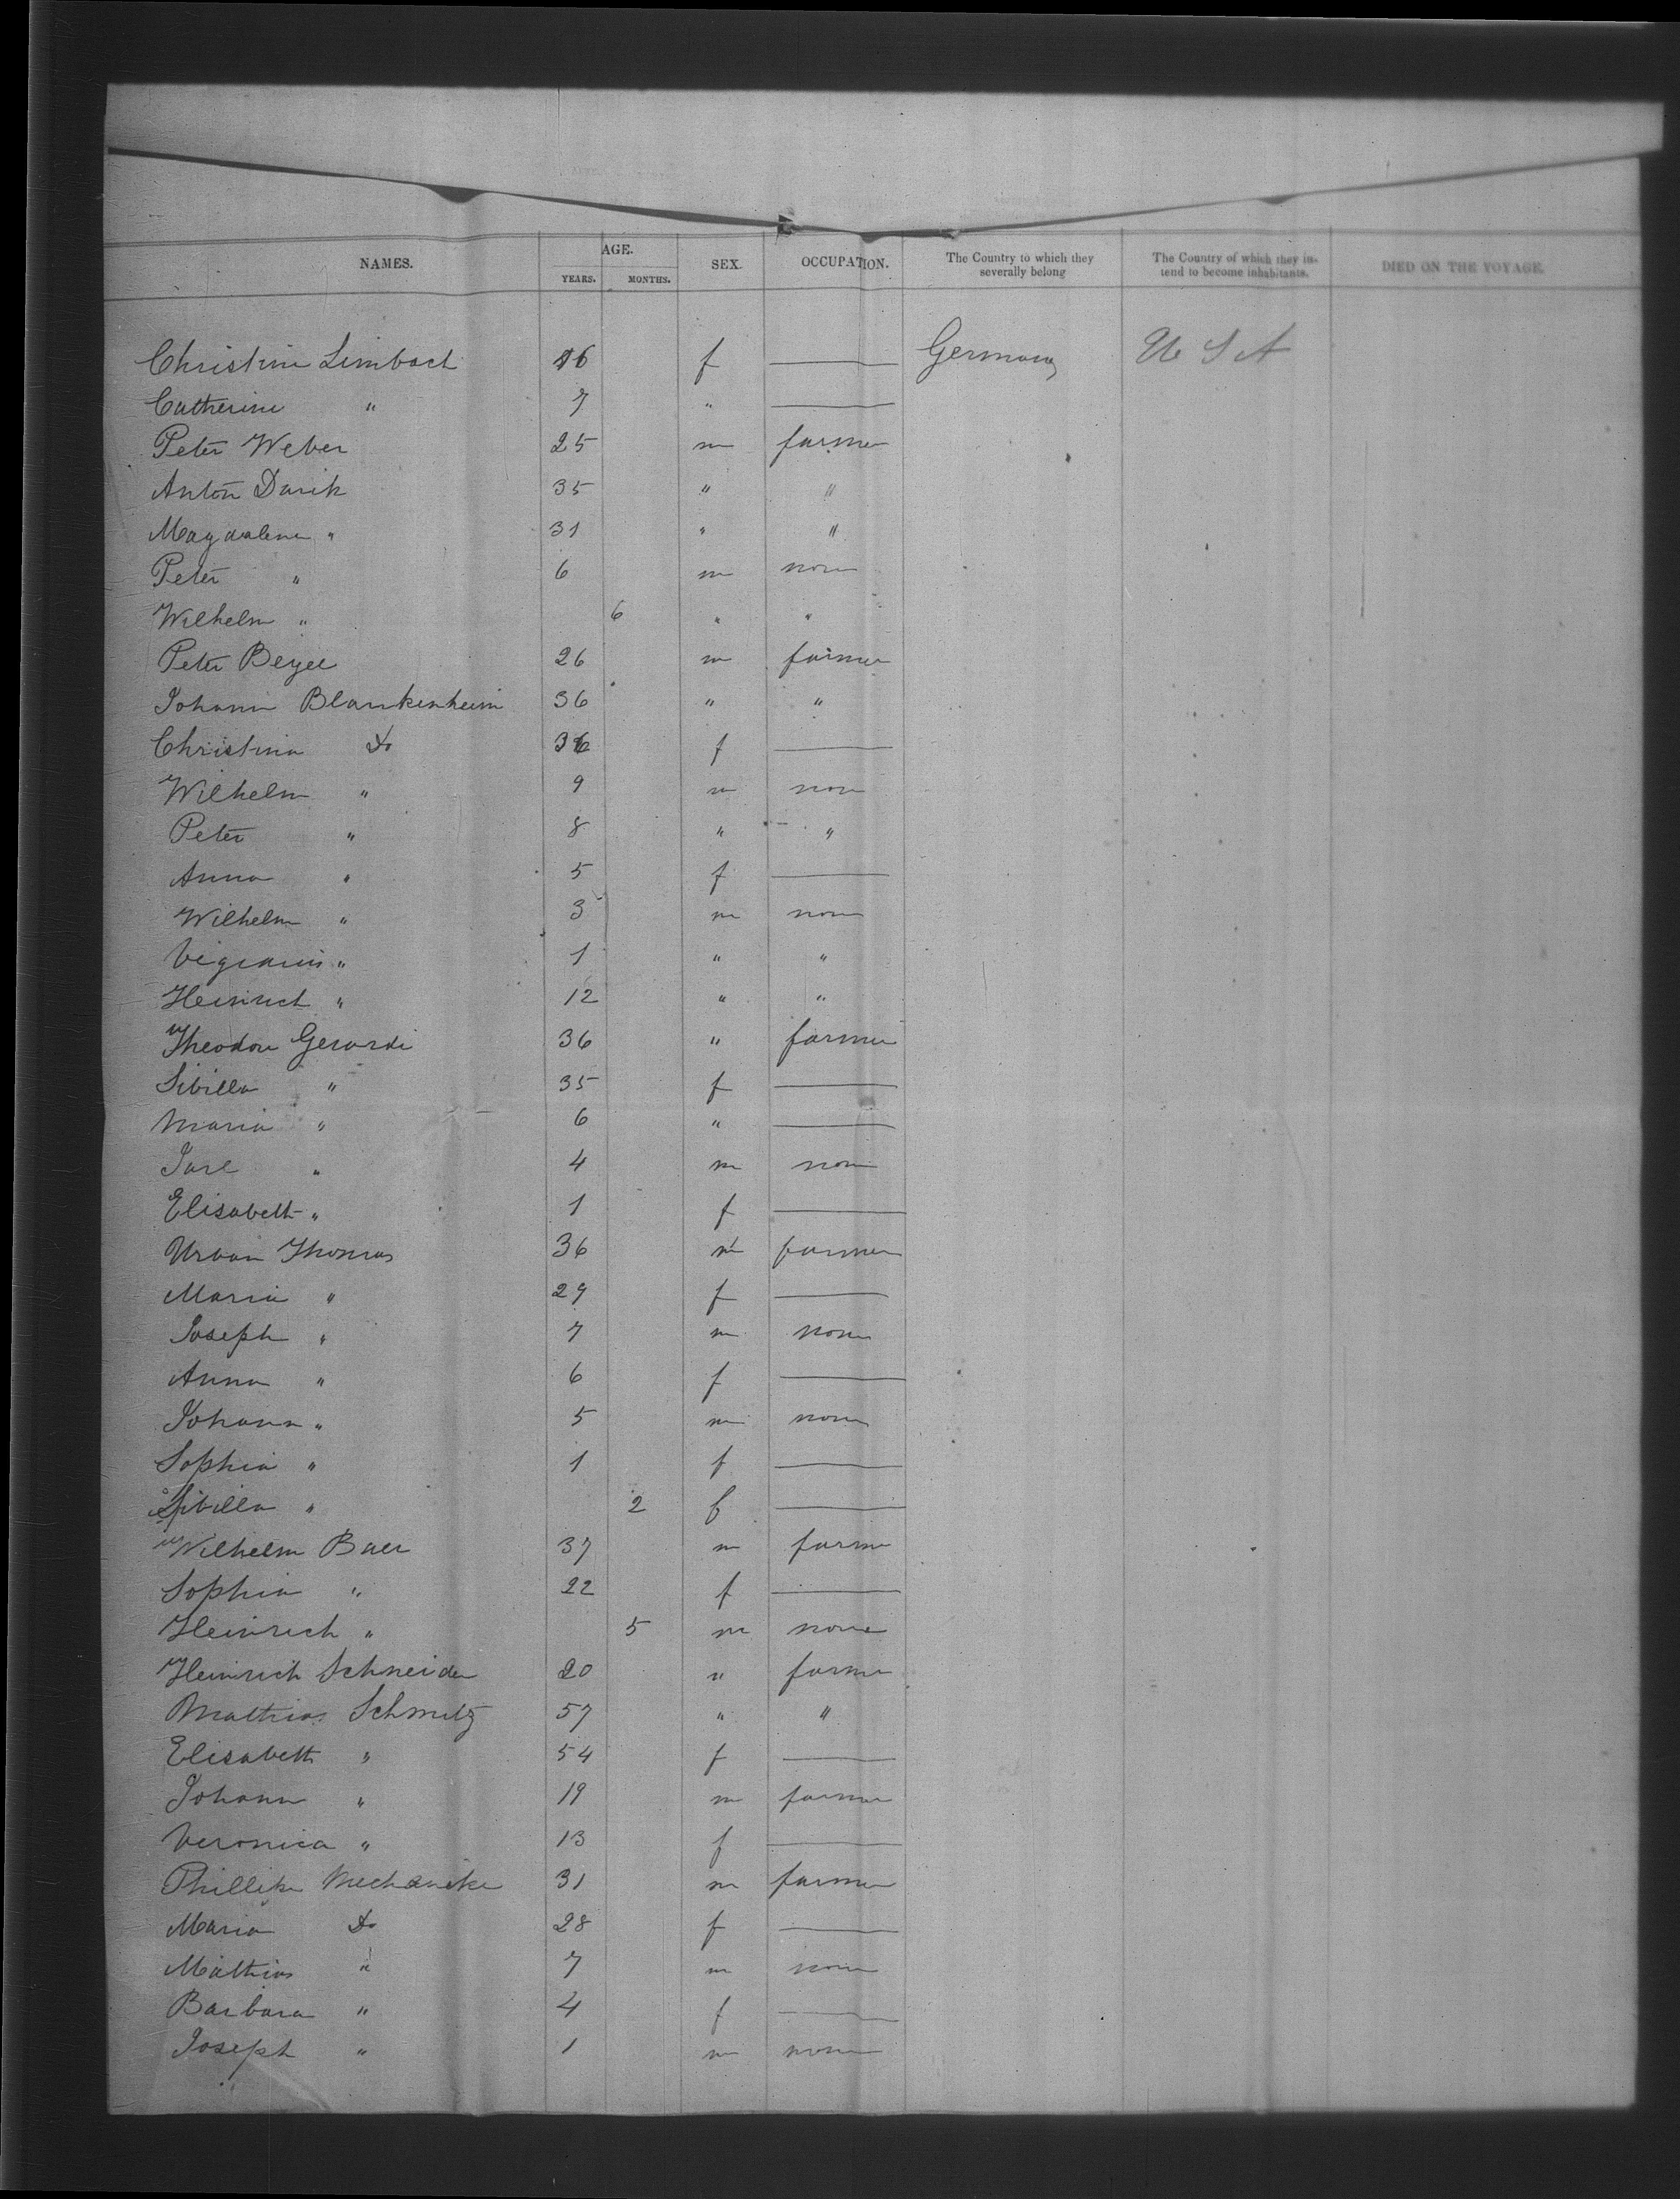 NAMES. AGE. YEARS. MONTHS. SEX. OCCUPATION. The Country to which they severally belong The Country of which they intend to become inhabitants. DIED ON THE VOYAGE.
Christine Limbach 16 f — Germany U S A
Catherine " 7 " —
Peter Weber 25 m farmer
Anton Darik 35 " "
Magdalena " 31 " "
Peter " 6 m none
Wilhelm " 6 " "
Peter Beyee 26 m farmer
Johann Blankenheim 36 " "
Christina do 36 f —
Wilhelm " 9 m none
Peter " 8 " "
Anna " 5 f —
Wilhelm " 3 m none
" 1 " "
Heinrich " 12 " "
Theodore Gerardi 36 " farmer
Sibilla " 35 f —
Maria " 6 " —
" 4 m none
Elisabeth " 1 f —
Urban Thomas 36 m farmer
Maria " 29 f —
Joseph " 7 m none
Anna " 6 f —
Johann " 5 m none
Sophia " 1 f —
Sibilla " 2 f —
Wilhelm Baer 37 m farmer
Sophia " 22 f —
Heinrich " 5 m none
Heinrich Schneider 20 " farmer
Mathias Schmitz 57 " "
Elisabeth " 54 f —
Johann " 19 m farmer
Veronica " 13 f —
31 m farmer
Maria do 28 f —
Mathias " 7 m none
Barbara " 4 f —
Joseph " 1 m none